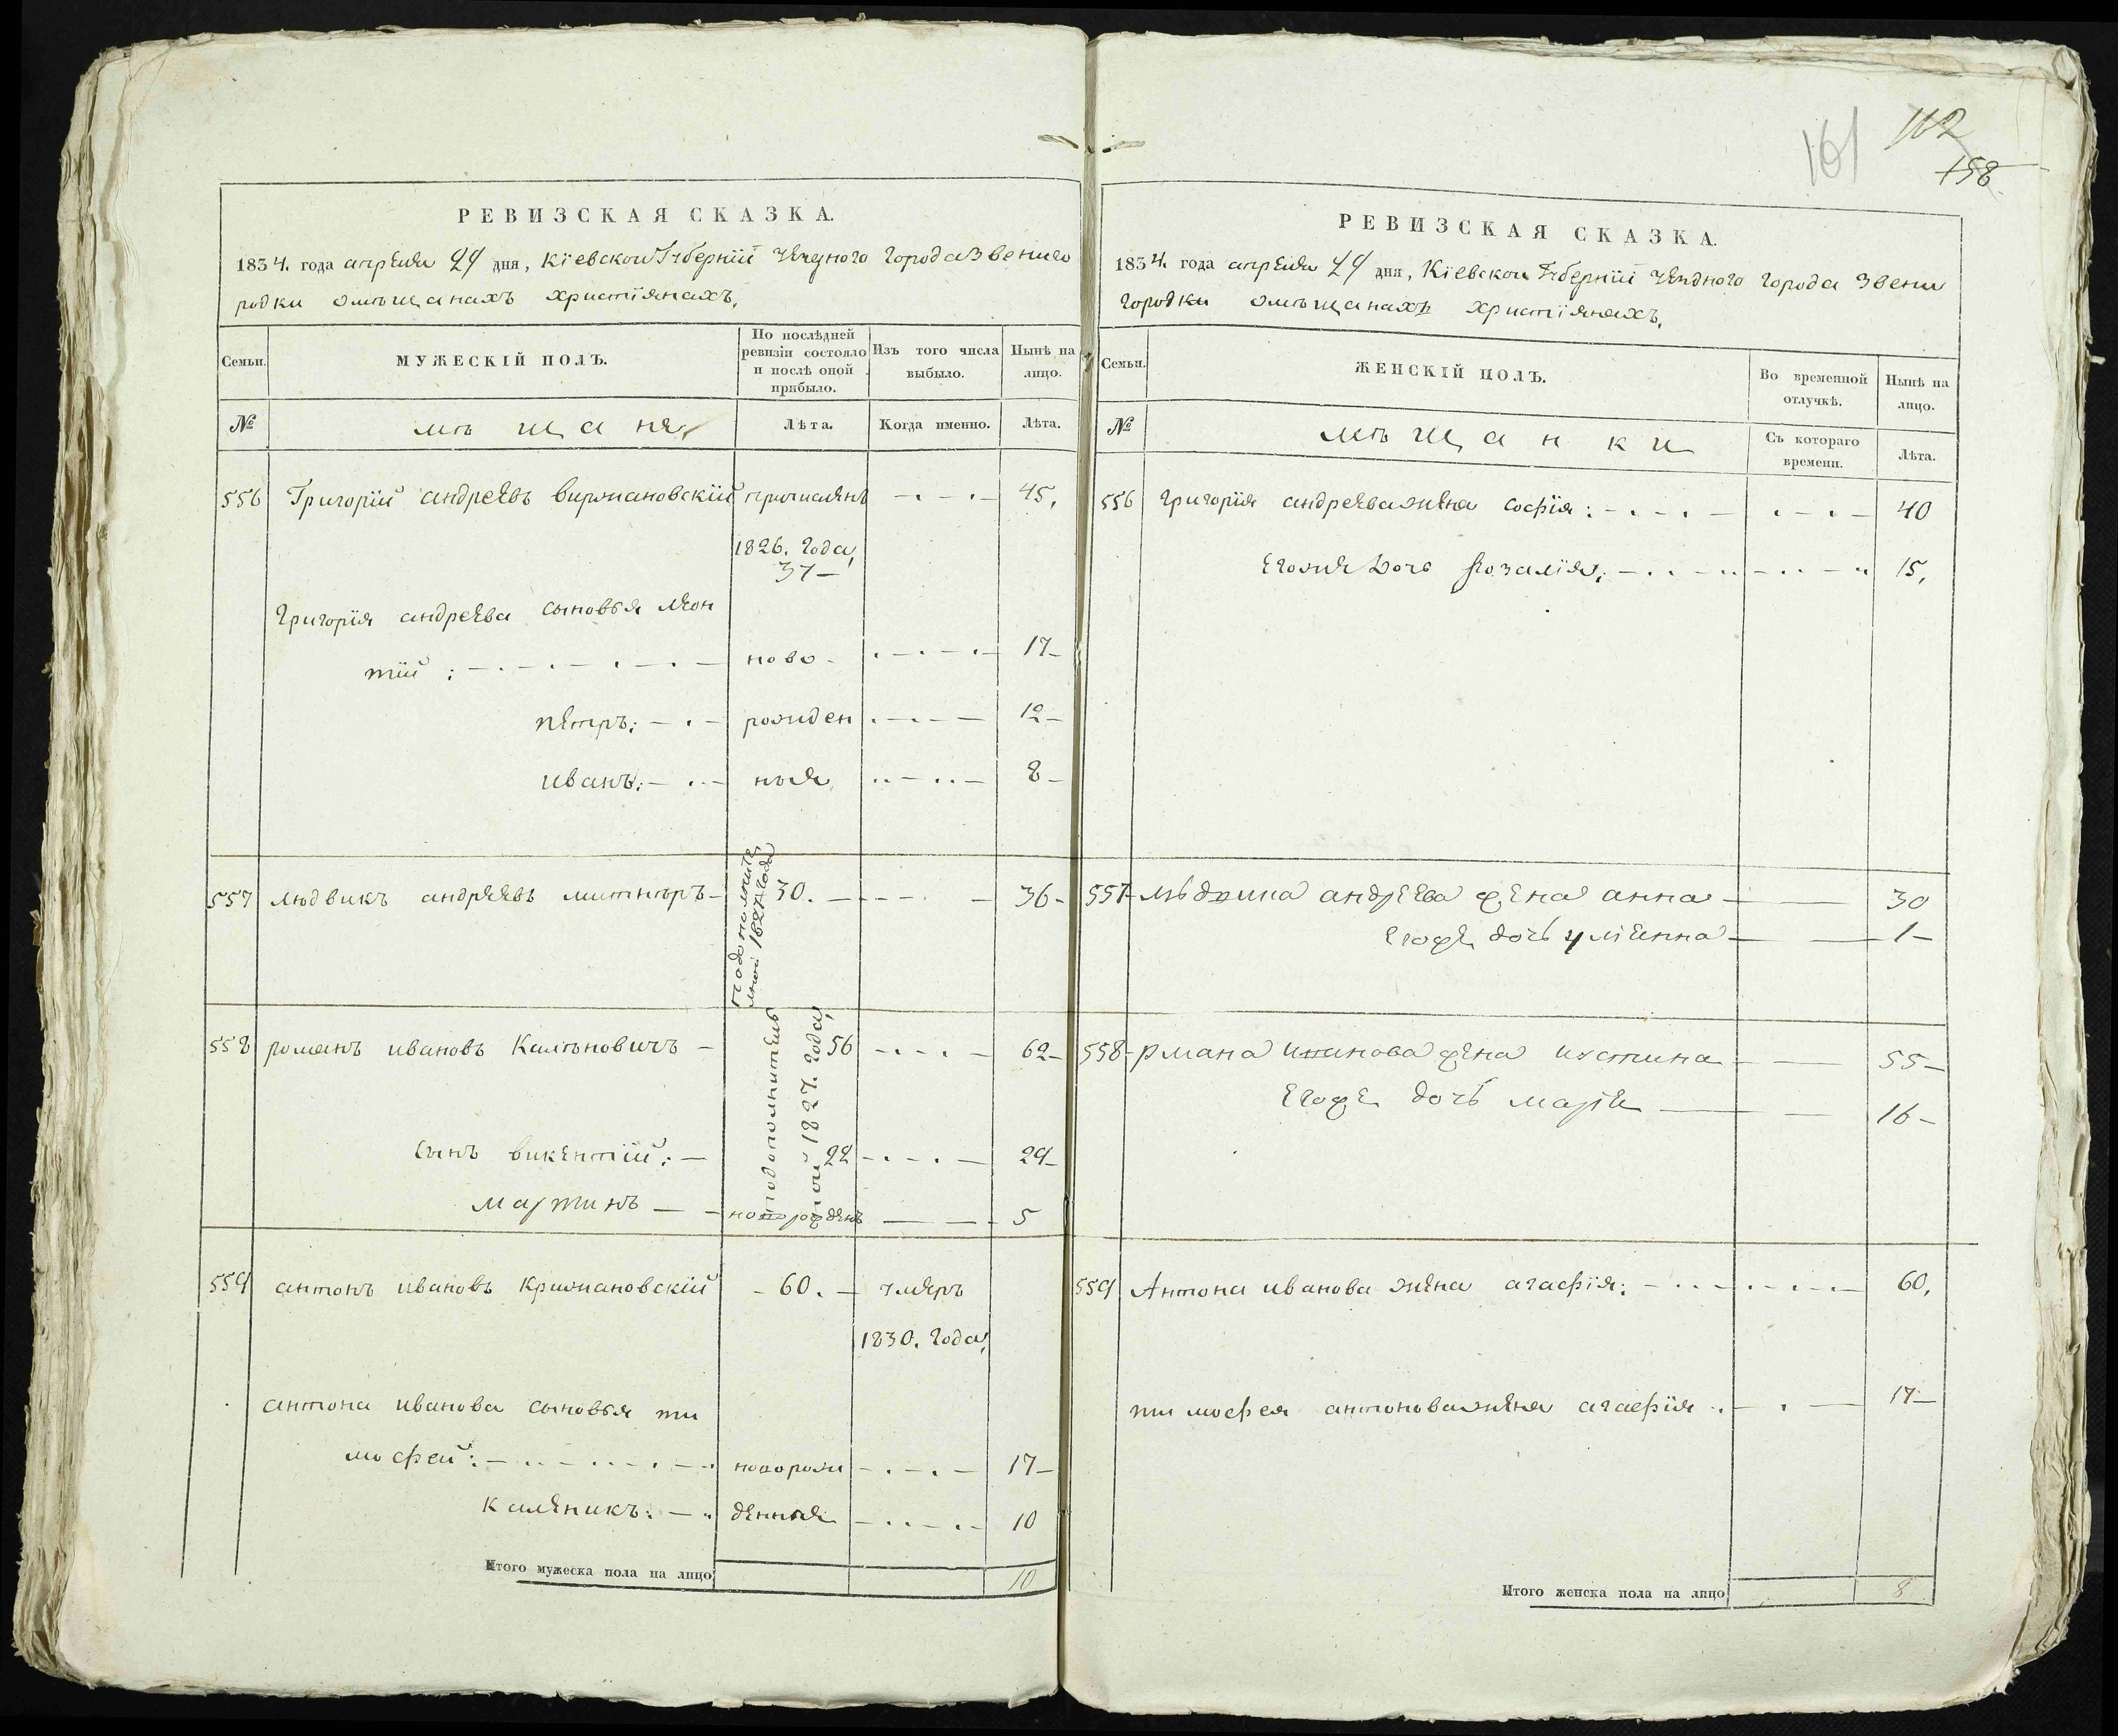 РЕВИЗСКАЯ СКАЗКА.
1834. года апреля 24 дня, Кіевской Губерніи уезднаго города Звениго
родки омѣщанахъ христіянахъ.
Семьи.
МУЖЕСКІЙ ПОЛЪ.
По послѣдней ревизіи состояло и послѣ оной прибыло.
Изъ того числа выбыло.
Нынѣ на лицо.
№
мѣщане
Лѣта.
Когда именно.
Лѣта.
556 Григорій андреевъ виржановскій причисленъ 45.
1826. года,
37
Григорія андреева сыновья леон
тій: ново 17
петръ: рожден 12
иванъ: ныя 8
557 людвикъ андреевъ 30. 36
подополните
лной 1827 года
558 романъ ивановъ 56 62
подополнитель
ной 1827. года,
сынъ викентій: 22 29
мартинъ новорожденъ 5
559 антонъ ивановъ крижановскій 60. умеръ
1830. года,
антона иванова сыновья ти
мофей: новорож 17
каленикъ: денныя 10
Итого мужеска пола на лицо 10
161
162
158
РЕВИЗСКАЯ СКАЗКА.
1834. года апреля 24 дня, Кіевской Губерніи уезднаго города Звени
городки омѣщанахъ христіянахъ.
Семьи.
ЖЕНСКІЙ ПОЛЪ.
Во временной отлучкѣ.
Нынѣ на лицо.
№
мѣщанки
Съ котораго времени.
Лѣта.
556 Григорія андреева жена софія: 40
Егоже дочь Розалія: 15.
557 андреева жена анна 30
Егоже дочь 1
558 рмана иванова жена иустина 55
Егоже дочь марія 16
559 Антона иванова жена агафія: 60.
тимофея антонова жена агафія 17
Итого женска пола на лицо 8